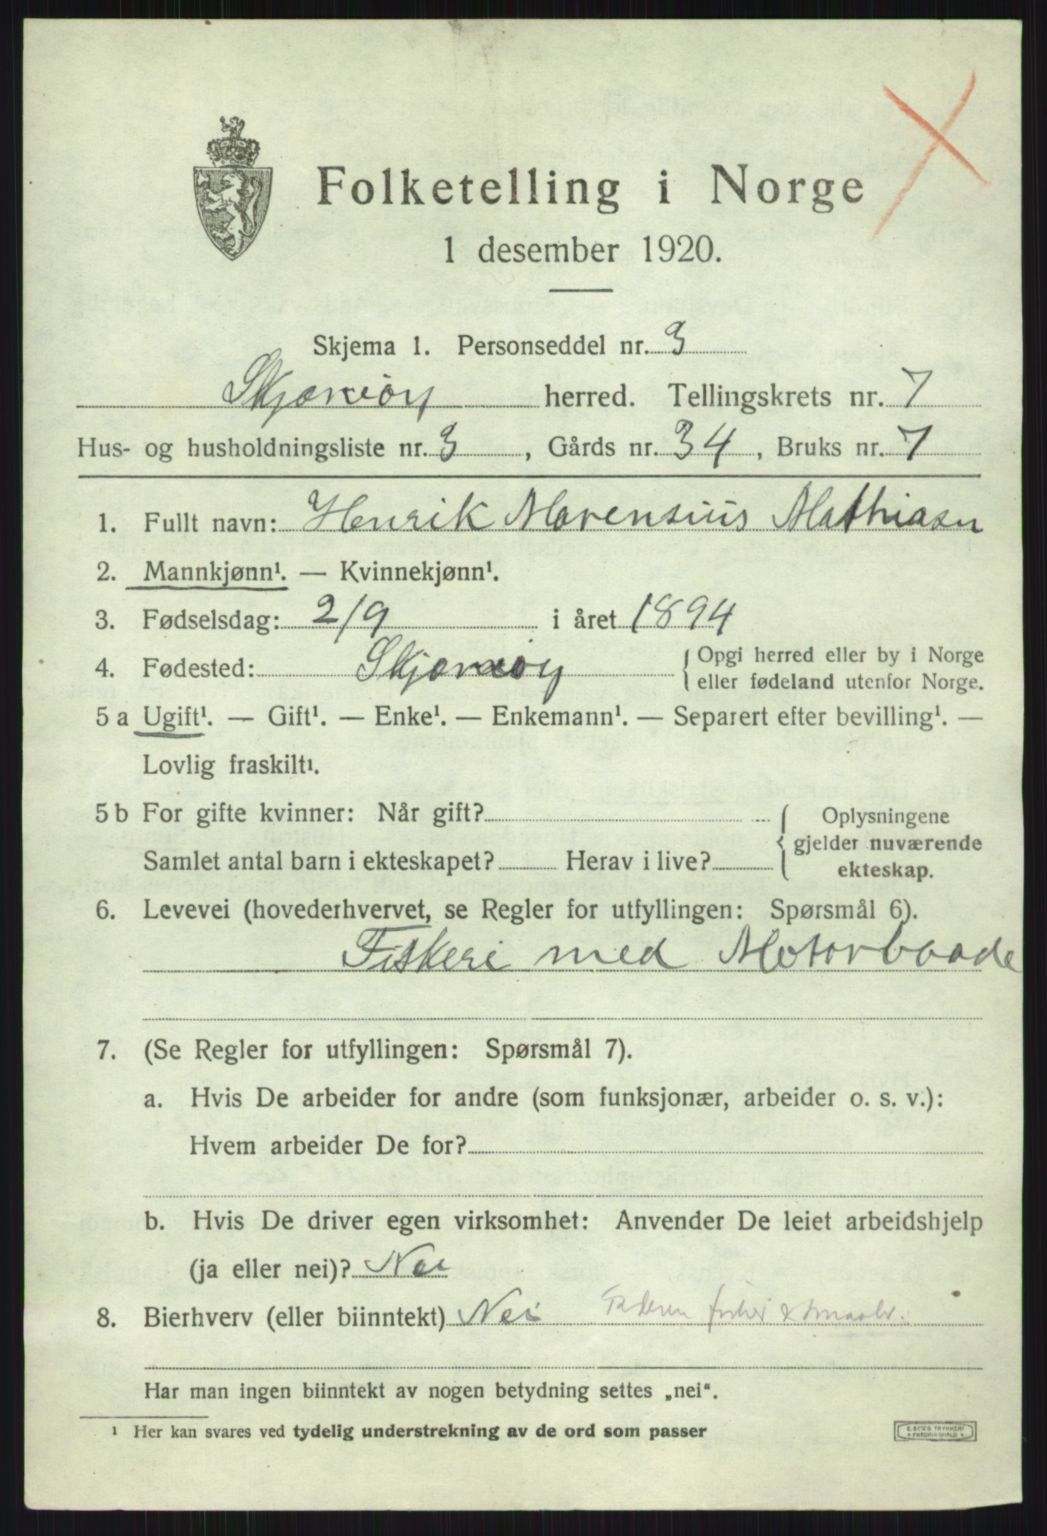 Folketelling i Norge
1 desember 1920.
Skjema 1. Personseddel nr. 3
Skjærvøy herred. Tellingskrets nr. 7
Hus- og husholdningsliste nr. 3, Gårds nr. 34, Bruks nr. 7
1. Fullt navn: Henrik Marensius Mathiasen
2. Mannkjønn¹. — Kvinnekjønn¹.
3. Fødselsdag: 2/9 i året 1894
4. Fødested: Skjærvøy Opgi herred eller by i Norge
eller fødeland utenfor Norge.
5 a Ugift¹. — Gift¹. — Enke¹. — Enkemann¹. — Separert efter bevilling¹. —
Lovlig fraskilt¹.
5 b For gifte kvinner: Når gift? Oplysningene
gjelder nuværende
Samlet antal barn i ekteskapet? Herav i live? ekteskap.
6. Levevei (hovederhvervet, se Regler for utfyllingen: Spørsmål 6).
Fiskeri med Motorbaade
7. (Se Regler for utfyllingen: Spørsmål 7).
a. Hvis De arbeider for andre (som funksjonær, arbeider o. s. v.):
Hvem arbeider De for?
b. Hvis De driver egen virksomhet: Anvender De leiet arbeidshjelp
(ja eller nei)? Nei
8. Bierhverv (eller biinntekt) Nei Faderen fisker & smaabr.
Har man ingen biinntekt av nogen betydning settes „nei".
¹ Her kan svares ved tydelig understrekning av de ord som passer